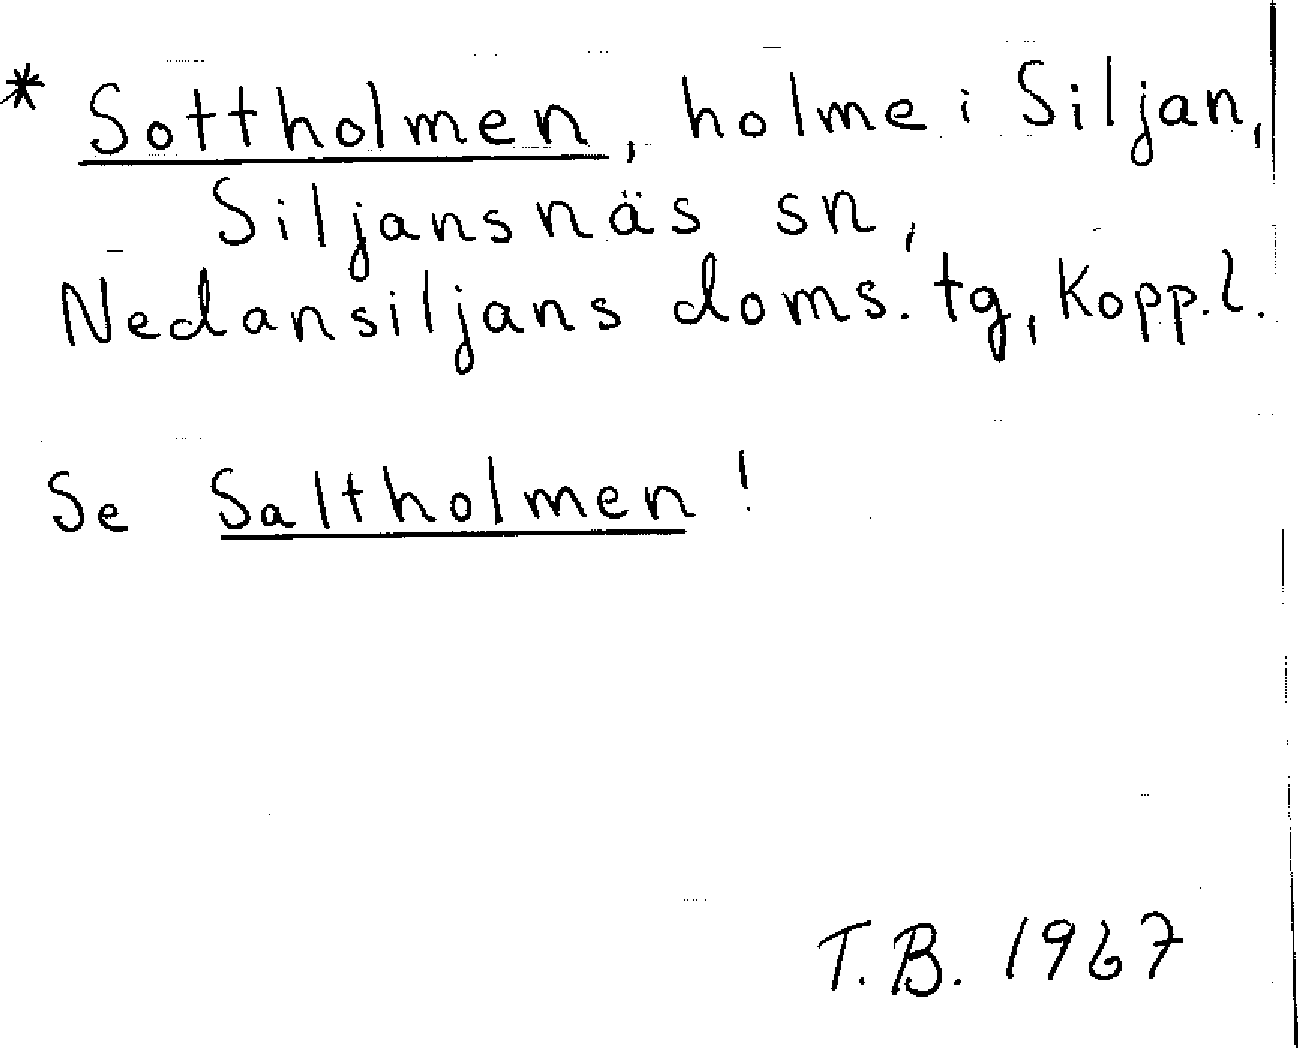 * Sottholmen, holme i Siljan,
Siljansnäs sn,
Nedansiljans doms. tg, Kopp. l.
Se Saltholmen!
T.B. 1967